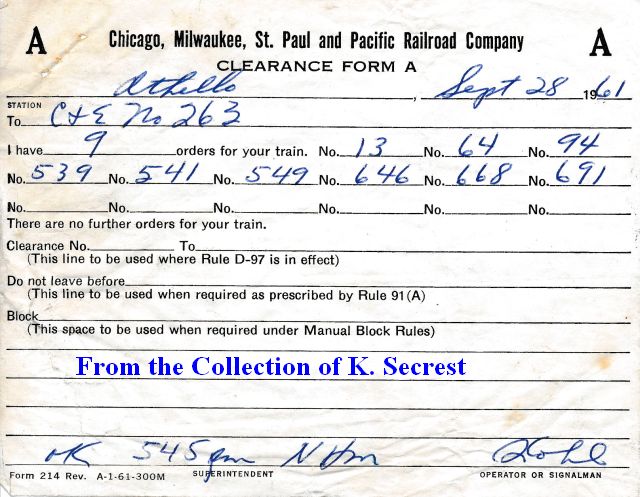 A Chicago, Milwaukee, St. Paul and Pacific Railroad Company A
CLEARANCE FORM A
Othello, Sept 28 1961
STATION
To C+E No 263
I have 9 orders for your train. No. 13 No. 64 No. 94
No. 539 No. 541 No. 549 No. 646 No. 668 No. 691
No. No. No. No. No. No.
There are no further orders for your train.
Clearance No. To
(This line to be used where Rule D-97 is in effect)
Do not leave before
(This line to be used when required as prescribed by Rule 91(A)
Block
(This space to be used when required under Manual Block Rules)
From the Collection of K. Secrest
OK 545 pm
Form 214 Rev. A-1-61-300M SUPERINTENDENT OPERATOR OR SIGNALMAN